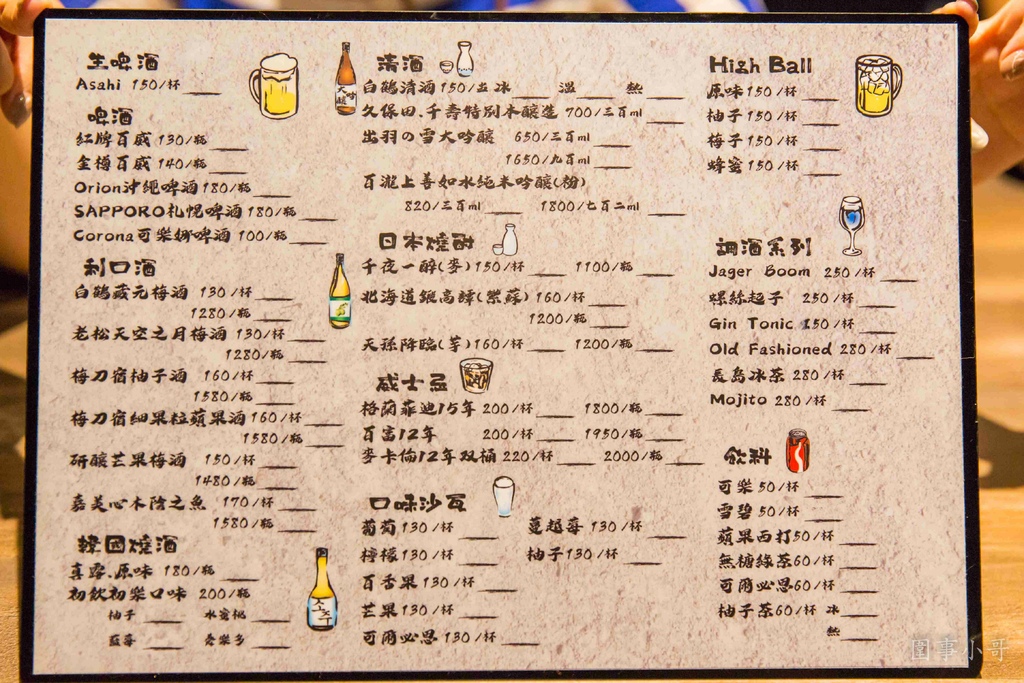 生啤酒
Asahi 150/杯
啤酒
紅牌百威 130/瓶
金樽百威 140/瓶
Orion沖繩啤酒 180/瓶
SAPPORO札幌啤酒 180/瓶
Corona可樂娜啤酒 100/瓶
利口酒
白鶴藏元梅酒 130/杯
1280/瓶
老松天空之月梅酒 130/杯
1280/瓶
梅乃宿柚子酒 160/杯
1580/瓶
梅乃宿細果粒蘋果酒 160/杯
1580/瓶
研釀芒果梅酒 150/杯
1480/瓶
嘉美心木陰之魚 170/杯
1580/瓶
韓國燒酒
真露.原味 180/瓶
初飲初樂口味 200/瓶
柚子 水蜜桃
藍莓 養樂多
清酒
大吟醸
白鶴清酒 150/壺 冰 溫 熱
久保田.千壽特別本釀造 700/三百ml
出羽の雪大吟釀 650/三百ml
1650/九百ml
百瀧上善如水純米吟釀(粉)
820/三百ml 1800/七百二ml
日本燒酎
千夜一醉(麥) 150/杯 1100/瓶
北海道鍛高譚(紫蘇) 160/杯
1200/瓶
天孫降臨(芋) 160/杯 1200/瓶
威士忌
格蘭菲迪15年 200/杯 1800/瓶
百富12年 200/杯 1950/瓶
麥卡倫12年双桶 220/杯 2000/瓶
口味沙瓦
葡萄 130/杯 蔓越莓 130/杯
檸檬 130/杯 柚子 130/杯
百香果 130/杯
芒果 130/杯
可爾必思 130/杯
소주
High Ball
原味 150/杯
柚子 150/杯
梅子 150/杯
蜂蜜 150/杯
調酒系列
Jager Boom 250/杯
螺絲起子 250/杯
Gin Tonic 250/杯
Old Fashioned 280/杯
長島冰茶 280/杯
Mojito 280/杯
飲料
可樂 50/杯
雪碧 50/杯
蘋果西打 50/杯
無糖綠茶 60/杯
可爾必思 60/杯
柚子茶 60/杯 冰
熱
圍事小哥